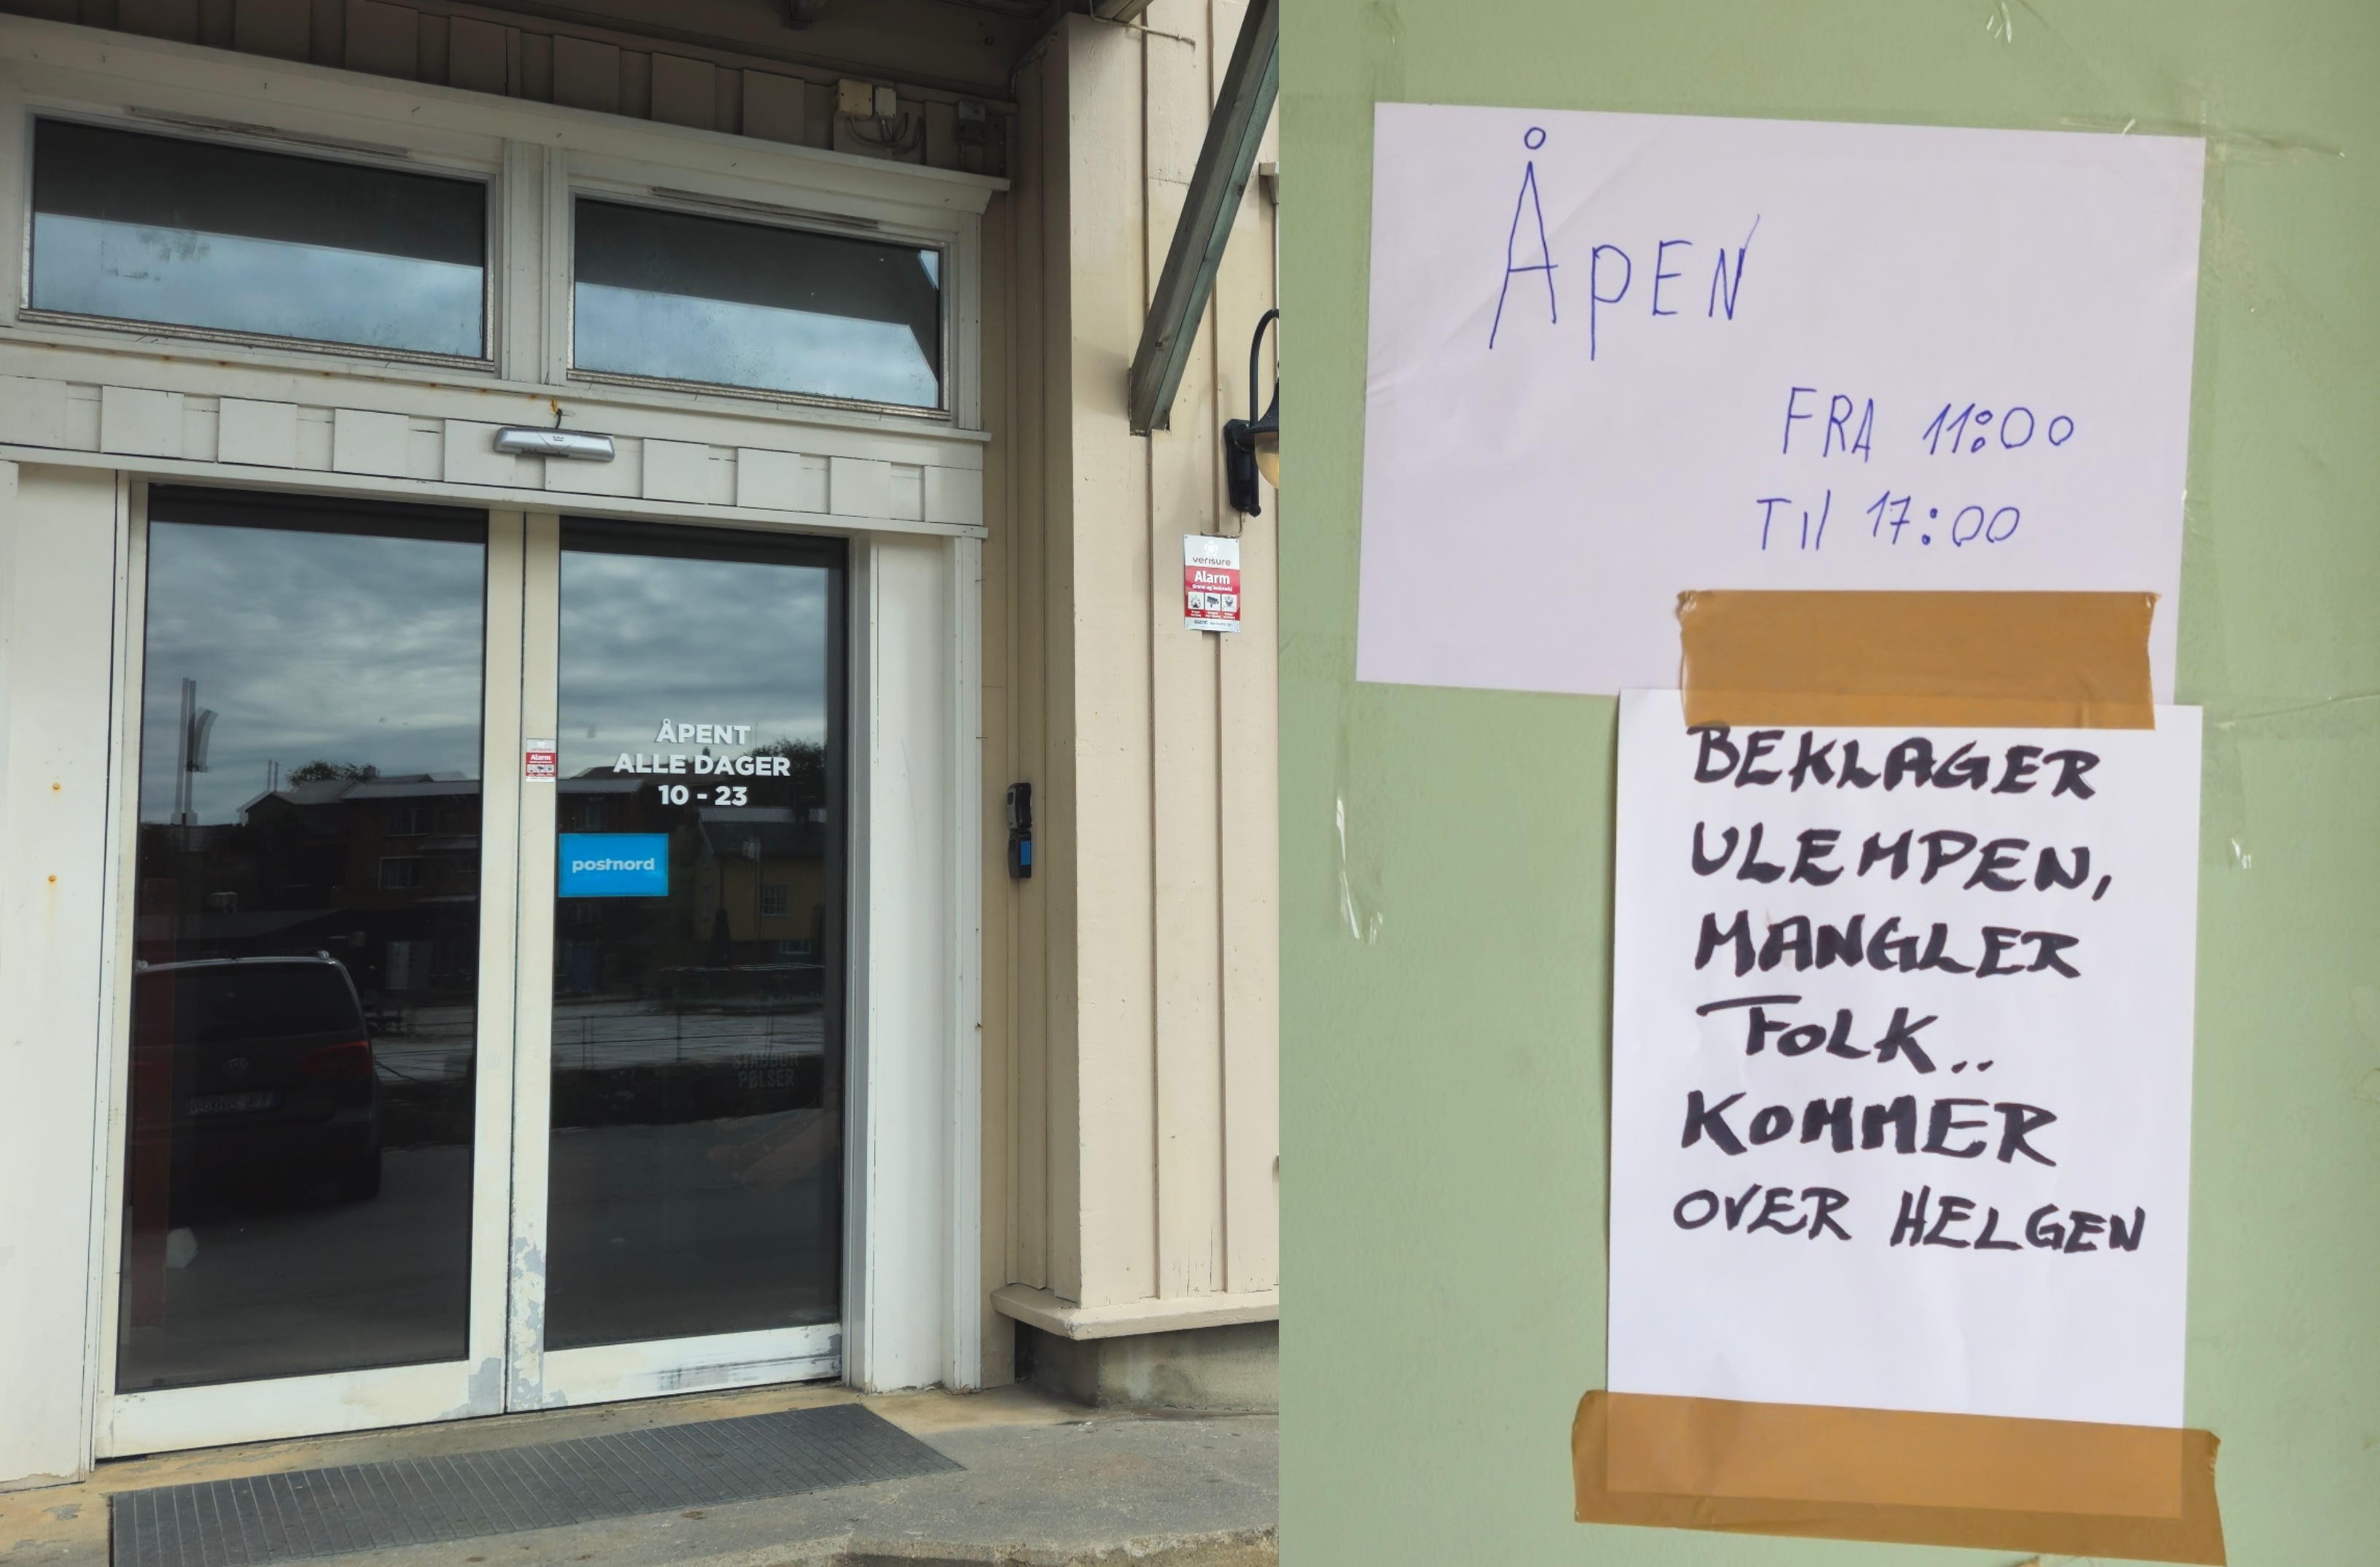 ÅPENT
ALLE DAGER
10 - 23
postnord
verisure
Alarm
Alarm
STABBUR
PØLSER
ÅPEN
FRA 11:00
Til 17:00
BEKLAGER
ULEMPEN,
MANGLER
FOLK..
KOMMER
OVER HELGEN